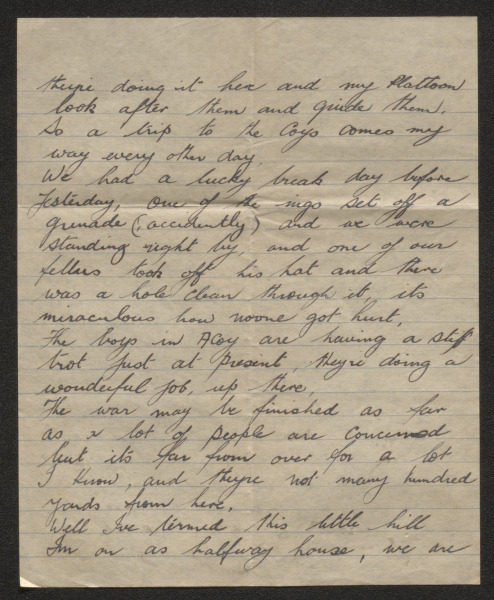 they're doing it here and my Plattoon
look after them and guide them.
So a trip to the Coys comes my
way every other day.
We had a lucky break day before
yesterday, one of the ngs set off a
grenade (accidently) and we were
standing right by, and one of our
fellers took off his hat and there
was a hole clean through it, its
miraculous how noone got hurt.
The boys in A Coy are having a stiff
trot just at present, theyre doing a
wonderful job, up there.
The war may be finished as far
as a lot of people are concerned
but its far from over for a lot
I know, and theyre not many hundred
yards from here.
Well I've termed this little hill
Im on as halfway house, we are